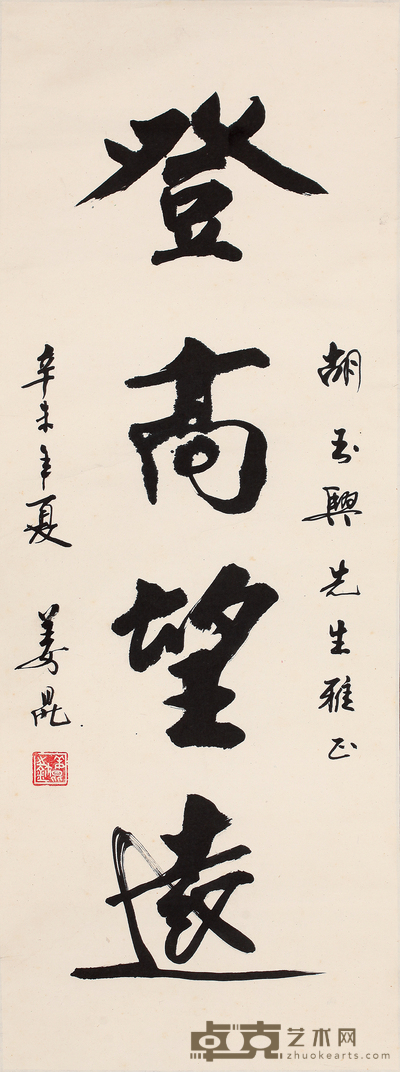 胡玉興先生雅正
登高望遠
辛未年夏 姜昆
卓克艺术网
zhuokearts.com